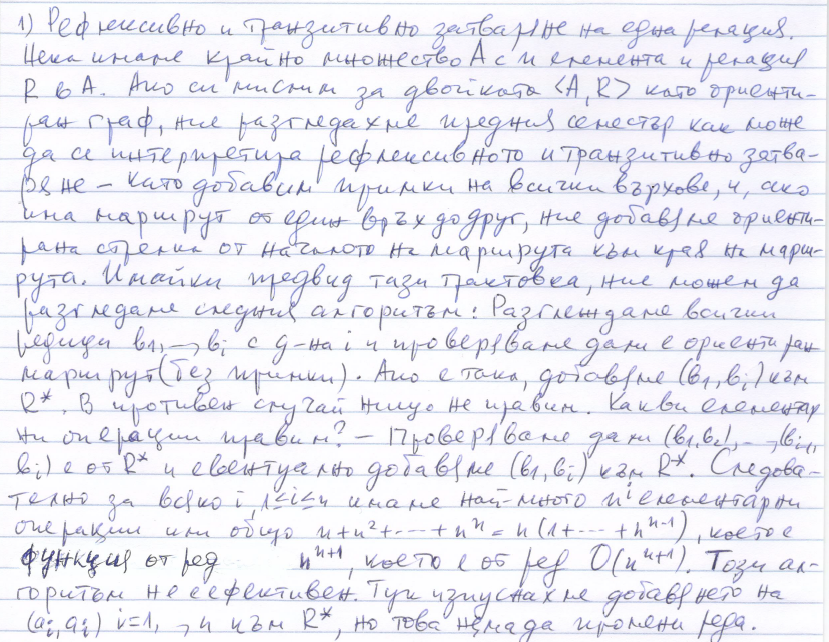 1) Рефлексивно и транзитивно затваряне на една релация.
Нека имаме крайно множество A с n елемента и релация
R в A. Ако си мислим за двойката <A, R> като ориенти-
ран граф, ние разгледахме предния семестър как може
да се интерпретира рефлексивното и транзитивно затва-
ряне – като добавим примки на всички върхове, и, ако
има маршрут от един връх до друг, ние добавяме ориенти-
рана стрелка от началото на маршрута към края на марш-
рута. Имайки предвид тази трактовка, ние можем да
разгледаме следния алгоритъм: Разглеждаме всички
редици b1, –, bi с д-на i и проверяваме дали е ориентиран
маршрут (без примки). Ако е така, добавяме (b1, bi) към
R*. В противен случай нищо не правим. Какви елементар
ни операции правим? – Проверяваме дали (b1, b2), –, (bi-1,
bi) е от R* и евентуално добавяме (b1, bi) към R*. Следова-
телно за всяко i, 1≤i≤n имаме най-много n^i елементарни
операции или общо n+n²+---+n^n = n(1+---+n^(n-1)), което е
функция от ред n^(n+1), което е от ред O(n^(n+1)). Този ал-
горитъм не е ефективен. Тук изпуснахме добавянето на
(ai, ai) i=1, –, n към R*, но това няма да промени реда.